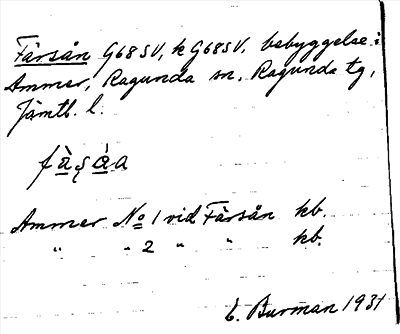 Färsån G68SV, k G68SV, bebyggelse i
Ammer, Ragunda sn, Ragunda tg,
Jämtl. l.
fàs̨å̀a
Ammer No 1 vid Färsån kb.
" " 2 " " kb.
E. Burman 1931